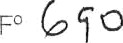 Fº 690